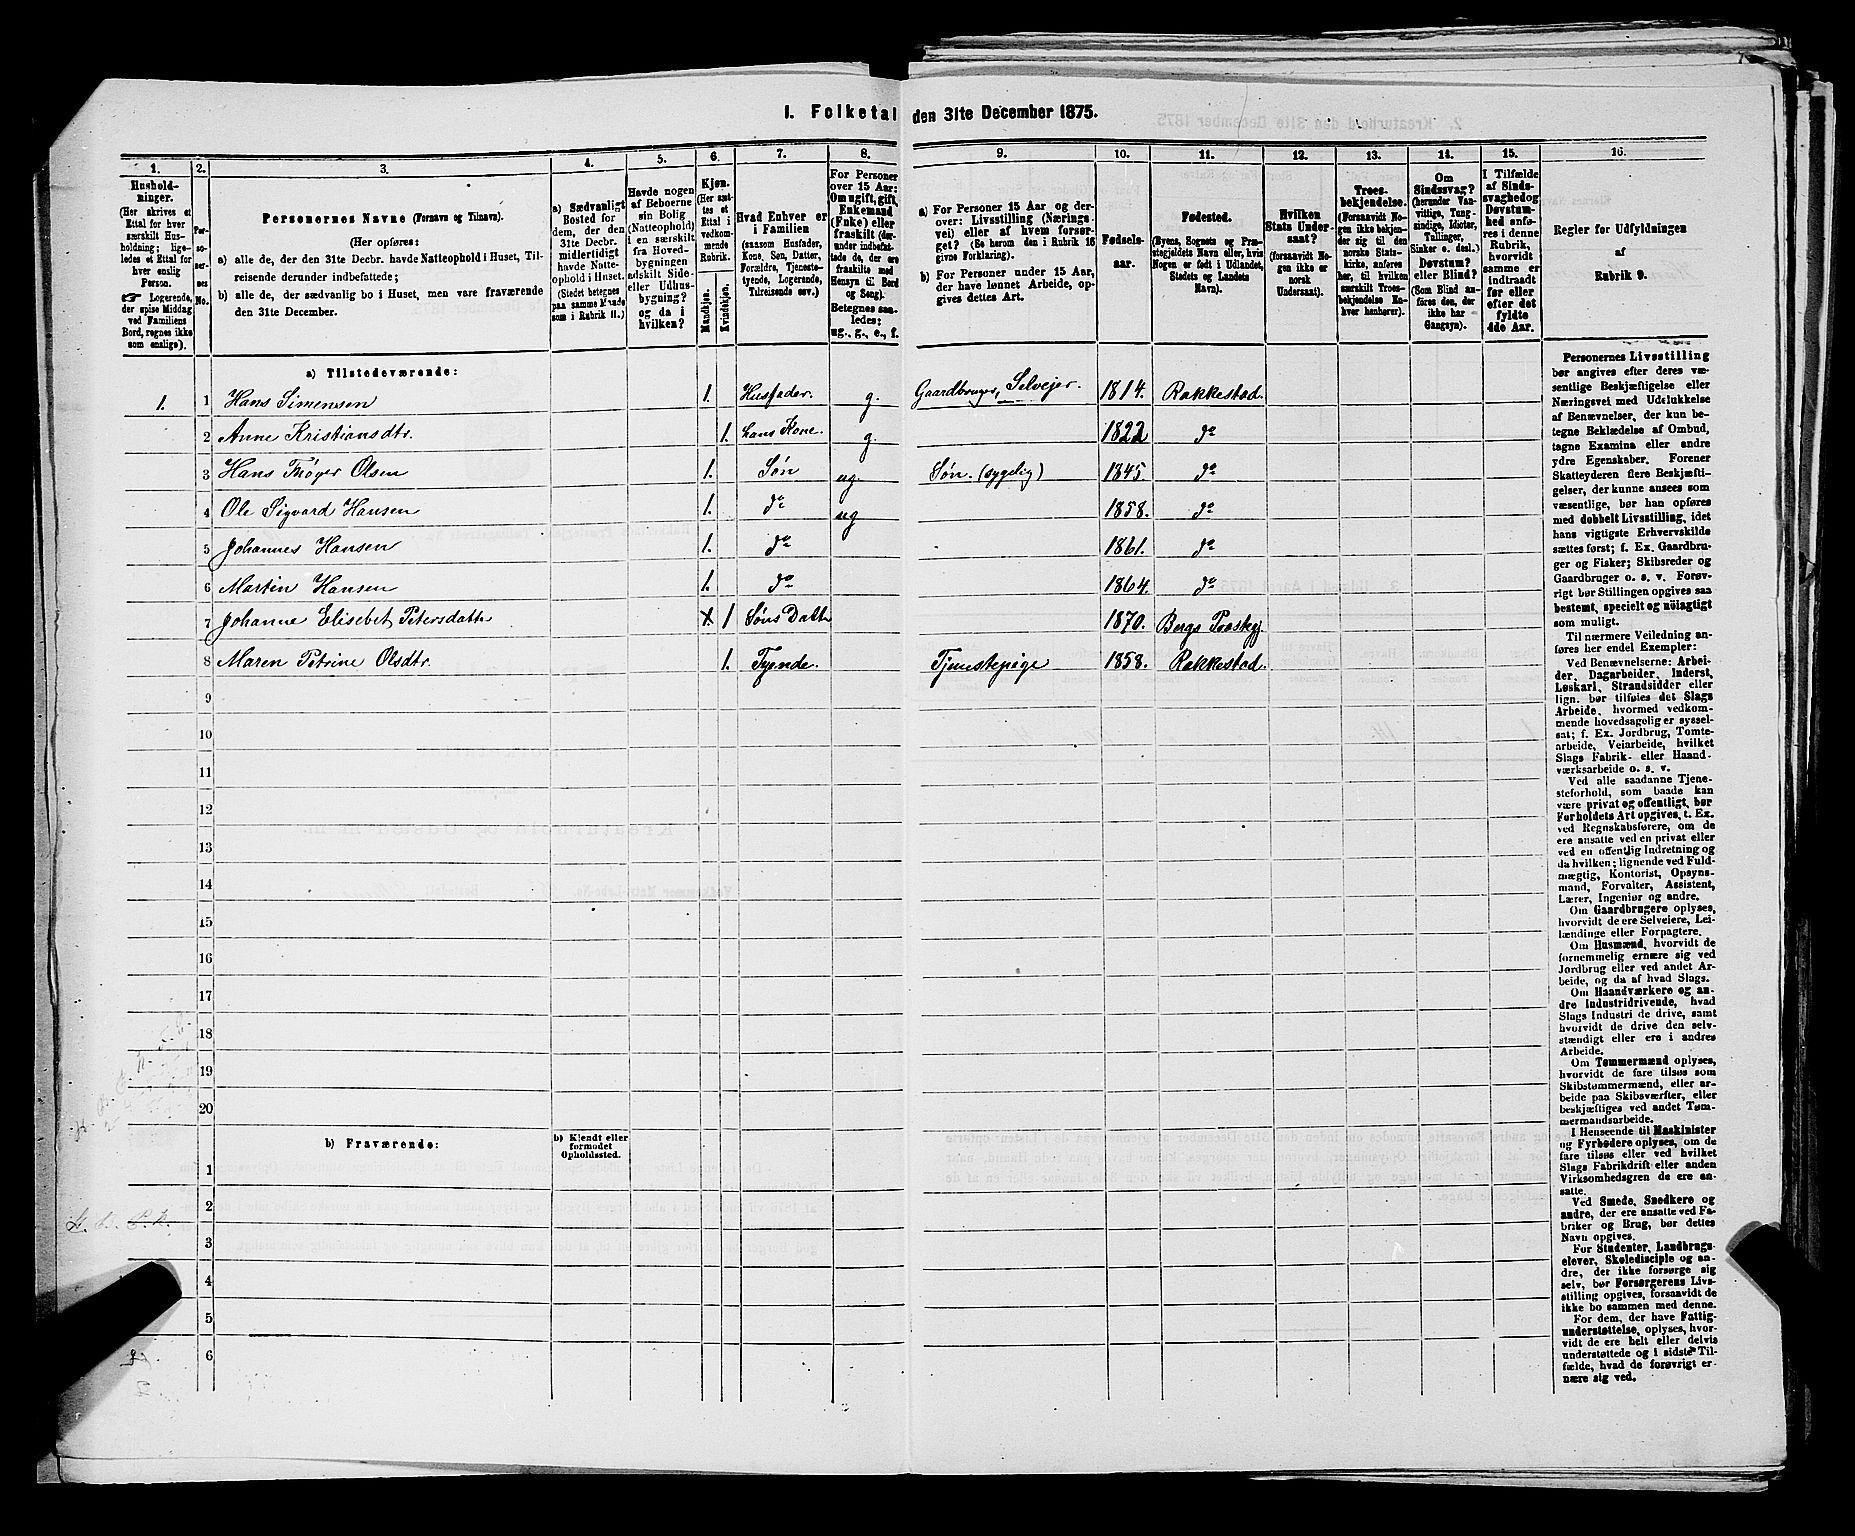 1. Folketal den 31te December 1875.
1. 2. 3. 4. 5. 6. 7. 8. 9. 10. 11. 12. 13. 14. 15. 16.
Husholdninger.
(Her skrives et
Ettal for hver
særskilt Husholdning; ligeledes et Ettal for
hver enslig
Person.
☞ Logerende,
der spise Middag
ved Familiens
Bord, regnes ikke
som enslige).
Personernes No.
Personernes Navne (Fornavn og Tilnavn).
(Her opføres:
a) alle de, der den 31te Decbr. havde Natteophold i Huset, Tilreisende derunder indbefattede;
b) alle de, der sædvanlig bo i Huset, men vare fraværende
den 31te December.
a) Sædvanligt
Bosted for
dem, der den
31te Decbr.
midlertidigt
havde Natteophold i Huset.
(Stedet betegnes
paa samme Maade
som i Rubrik 11.)
Havde nogen
af Beboerne
sin Bolig
(Natteophold)
i en særskilt
fra Hovedbygningen
adskilt Side-
eller Udhusbygning? og da i
hvilken?
Kjøn.
(Her sættes et
Ettal i
vedkommende
Rubrik.
Mandkjøn.
Kvindekjøn.
Hvad Enhver er
i Familien
(saasom Husfader,
Kone, Søn, Datter,
Forældre, Tjenestetyende, Logerende,
Tilreisende osv.)
For Personer
over 15 Aar:
Om ugift, gift,
Enkemand
(Enke) eller
fraskilt (derunder indbefattede de, der ere
fraskilte med
Hensyn til Bord
og Seng).
Betegnes saaledes:
ug., g., e., f.
a) For Personer 15 Aar og derover: Livsstilling (Næringsvei) eller af hvem forsørget? (Se herom den i Rubrik 16
givne Forklaring).
b) For Personer under 15 Aar,
der have lønnet Arbeide, opgives dettes Art.
Fødselsaar.
Fødested.
(Byens, Sognets og Præstegjeldets Navn eller, hvis
Nogen er født i Udlandet,
Stedets og Landets
Navn).
Hvilken
Stats Undersaat?
(forsaavidt Nogen ikke er
norsk
Undersaat).
Troesbekjendelse.
(Forsaavidt Nogen ikke bekjender sig til den
norske Statskirke, anføres
her, til hvilken
særskilt Troesbekjendelse Enhver henhører).
Om
Sindssvag?
(herunder Vanvittige, Tungsindige, Idioter,
Tullinger,
Sinker o. desl.)
Døvstum?
eller Blind?
(Som Blind anføres den, der
ikke har
Gangsyn).
I Tilfælde
af Sindssvaghed og
Døvstumhed anføres i denne
Rubrik,
hvorvidt
samme er
indtraadt
før eller
efter det
fyldte
4de Aar.
Regler for Udfyldningen
af
Rubrik 9.
a) Tilstedeværende:
1. 1 Hans Simensen 1. Husfader. g. Gaardbruger, Selvejer. 1814. Rakkestad.
2 Anne Kristiansdtr. 1. hans Kone. g. 1822 do
3 Hans Thøger Olsen 1. Søn ug. Søn. (sygelig) 1845. do
4 Ole Sigvard Hansen 1. do ug 1858. do
5 Johannes Hansen 1. do 1861. do
6 Martin Hansen 1. do 1864. do
7 Johanne Elisebet Petersdattr 1 Søns Dattr 1870. Bergs Præstegj.
8 Maren Petrine Olsdtr. 1. Tyende. Tjenestepige 1858. Rakkestad.
9
10
11
12
13
14
15
16
17
18
19
20
b) Fraværende:
b) Kjendt eller
formodet
Opholdssted.
1
2
3
4
5
6
Personernes Livsstilling
bør angives efter deres væsentlige Beskjæftigelse eller
Næringsvei med Udelukkelse
af Benævnelser, der kun betegne Beklædelse af Ombud,
tagne Examina eller andre
ydre Egenskaber. Forener
Skatteyderen flere Beskjæftigelser, der kunne ansees som
væsentlige, bør han opføres
med dobbelt Livsstilling, idet
hans vigtigste Erhvervskilde
sættes først; f. Ex. Gaardbruger og Fisker; Skibsreder og
Gaardbruger o. s. v. Forøvrigt bør Stillingen opgives saa
bestemt, specielt og nøiagtigt
som muligt.
Til nærmere Veiledning anføres her endel Exempler:
Ved Benævnelserne: Arbeider, Dagarbeider, Inderst,
Løskarl, Strandsidder eller
lign. bør tilføies det Slags
Arbeide, hvormed vedkommende hovedsagelig er sysselsat; f. Ex. Jordbrug, Tomtearbeide, Veiarbeide, hvilket
Slags Fabrik- eller Haandværksarbeide o. s. v.
Ved alle saadanne Tjenesteforhold, som baade kan
være privat og offentligt, bør
Forholdets Art opgives, t. Ex.
ved Regnskabsførere, om de
ere ansatte ved en privat eller
ved en offentlig Indretning og
da hvilken; lignende ved Fuldmægtig, Kontorist, Opsynsmand, Forvalter, Assistent,
Lærer, Ingeniør og andre.
Om Gaardbrugere oplyses,
hvorvidt de ere Selveiere, Leilændinge eller Forpagtere.
Om Husmænd, hvorvidt de
fornemmelig ernære sig ved
Jordbrug eller ved andet Arbeide, og da af hvad Slags.
Om Haandværkere og andre Industridrivende, hvad
Slags Industri de drive, samt
hvorvidt de drive den selvstændigt eller ere i andres
Arbeide.
Om Tømmermænd oplyses,
hvorvidt de fare tilsøs som
Skibstømmermænd, eller arbeide paa Skibsværfter, eller
beskjæftiges ved andet Tømmermandsarbeide.
I Henseende til Maskinister
og Fyrbødere oplyses, om de
fare tilsøs eller ved hvilket
Slags Fabrikdrift eller anden
Virksomhedsgren de ere ansatte.
Ved Smede, Snedkere og
andre, der ere ansatte ved Fabriker og Brug, bør dettes
Navn opgives.
For Studenter, Landbrugselever, Skoledisciple og andre, der ikke forsørge sig
selv, bør Forsørgerens Livsstilling opgives, forsaavidt de
ikke bo sammen med denne.
For dem, der have Fattigunderstøttelse, oplyses, hvorvidt de ere helt eller delvis
understøttede og i sidste Tilfælde, hvad de forøvrigt ernære sig ved.